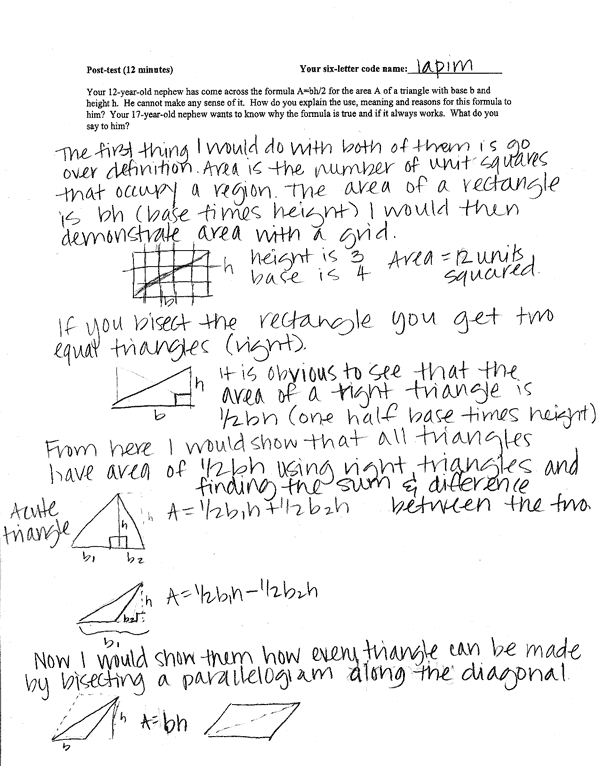 Post-test (12 minutes) Your six-letter code name: lapim
Your 12-year-old nephew has come across the formula A=bh/2 for the area A of a triangle with base b and
height h. He cannot make any sense of it. How do you explain the use, meaning and reasons for this formula to
him? Your 17-year-old nephew wants to know why the formula is true and if it always works. What do you
say to him?
The first thing I would do with both of them is go
over definition. Area is the number of unit squares
that occupy a region. The area of a rectangle
is bh (base times height) I would then
demonstrate area with a grid.
h height is 3 Area = 12 units
b base is 4 squared.
If you bisect the rectangle you get two
equal triangles (right).
h It is obvious to see that the
area of a right triangle is
b 1/2bh (one half base times height)
From here I would show that all triangles
have area of 1/2bh using right triangles and
finding the sum & diference
Acute h h A=1/2b1h+1/2b2h between the two.
triangle
b1 b2
h A=1/2b1h-1/2b2h
b2
b1
Now I would show them how every triangle can be made
by bisecting a parallelogram along the diagonal
h A=bh
b